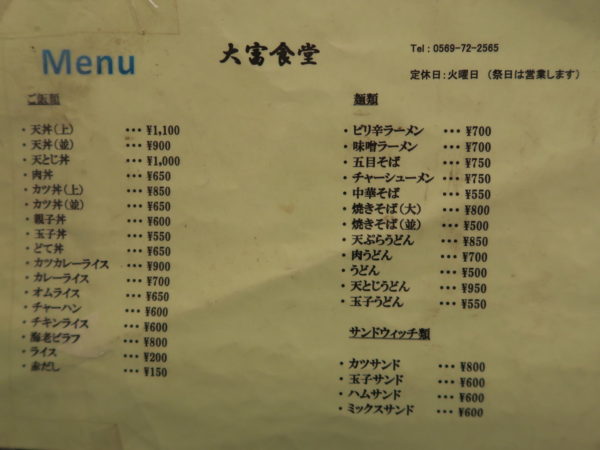 Menu
大富食堂
Tel : 0569-72-2565
定休日:火曜日 (祭日は営業します)
ご飯類
・天丼(上) ・・・ ¥1,100
・天丼(並) ・・・ ¥900
・天とじ丼 ・・・ ¥1,000
・肉丼 ・・・ ¥650
・カツ丼(上) ・・・ ¥850
・カツ丼(並) ・・・ ¥650
・親子丼 ・・・ ¥600
・玉子丼 ・・・ ¥550
・どて丼 ・・・ ¥650
・カツカレーライス ・・・ ¥900
・カレーライス ・・・ ¥700
・オムライス ・・・ ¥650
・チャーハン ・・・ ¥600
・チキンライス ・・・ ¥600
・海老ピラフ ・・・ ¥800
・ライス ・・・ ¥200
・赤だし ・・・ ¥150
麺類
・ピリ辛ラーメン ・・・ ¥700
・味噌ラーメン ・・・ ¥700
・五目そば ・・・ ¥750
・チャーシューメン ・・・ ¥750
・中華そば ・・・ ¥550
・焼きそば(大) ・・・ ¥800
・焼きそば(並) ・・・ ¥500
・天ぷらうどん ・・・ ¥850
・肉うどん ・・・ ¥700
・うどん ・・・ ¥500
・天とじうどん ・・・ ¥950
・玉子うどん ・・・ ¥550
サンドウィッチ類
・カツサンド ・・・ ¥800
・玉子サンド ・・・ ¥600
・ハムサンド ・・・ ¥600
・ミックスサンド ・・・ ¥600